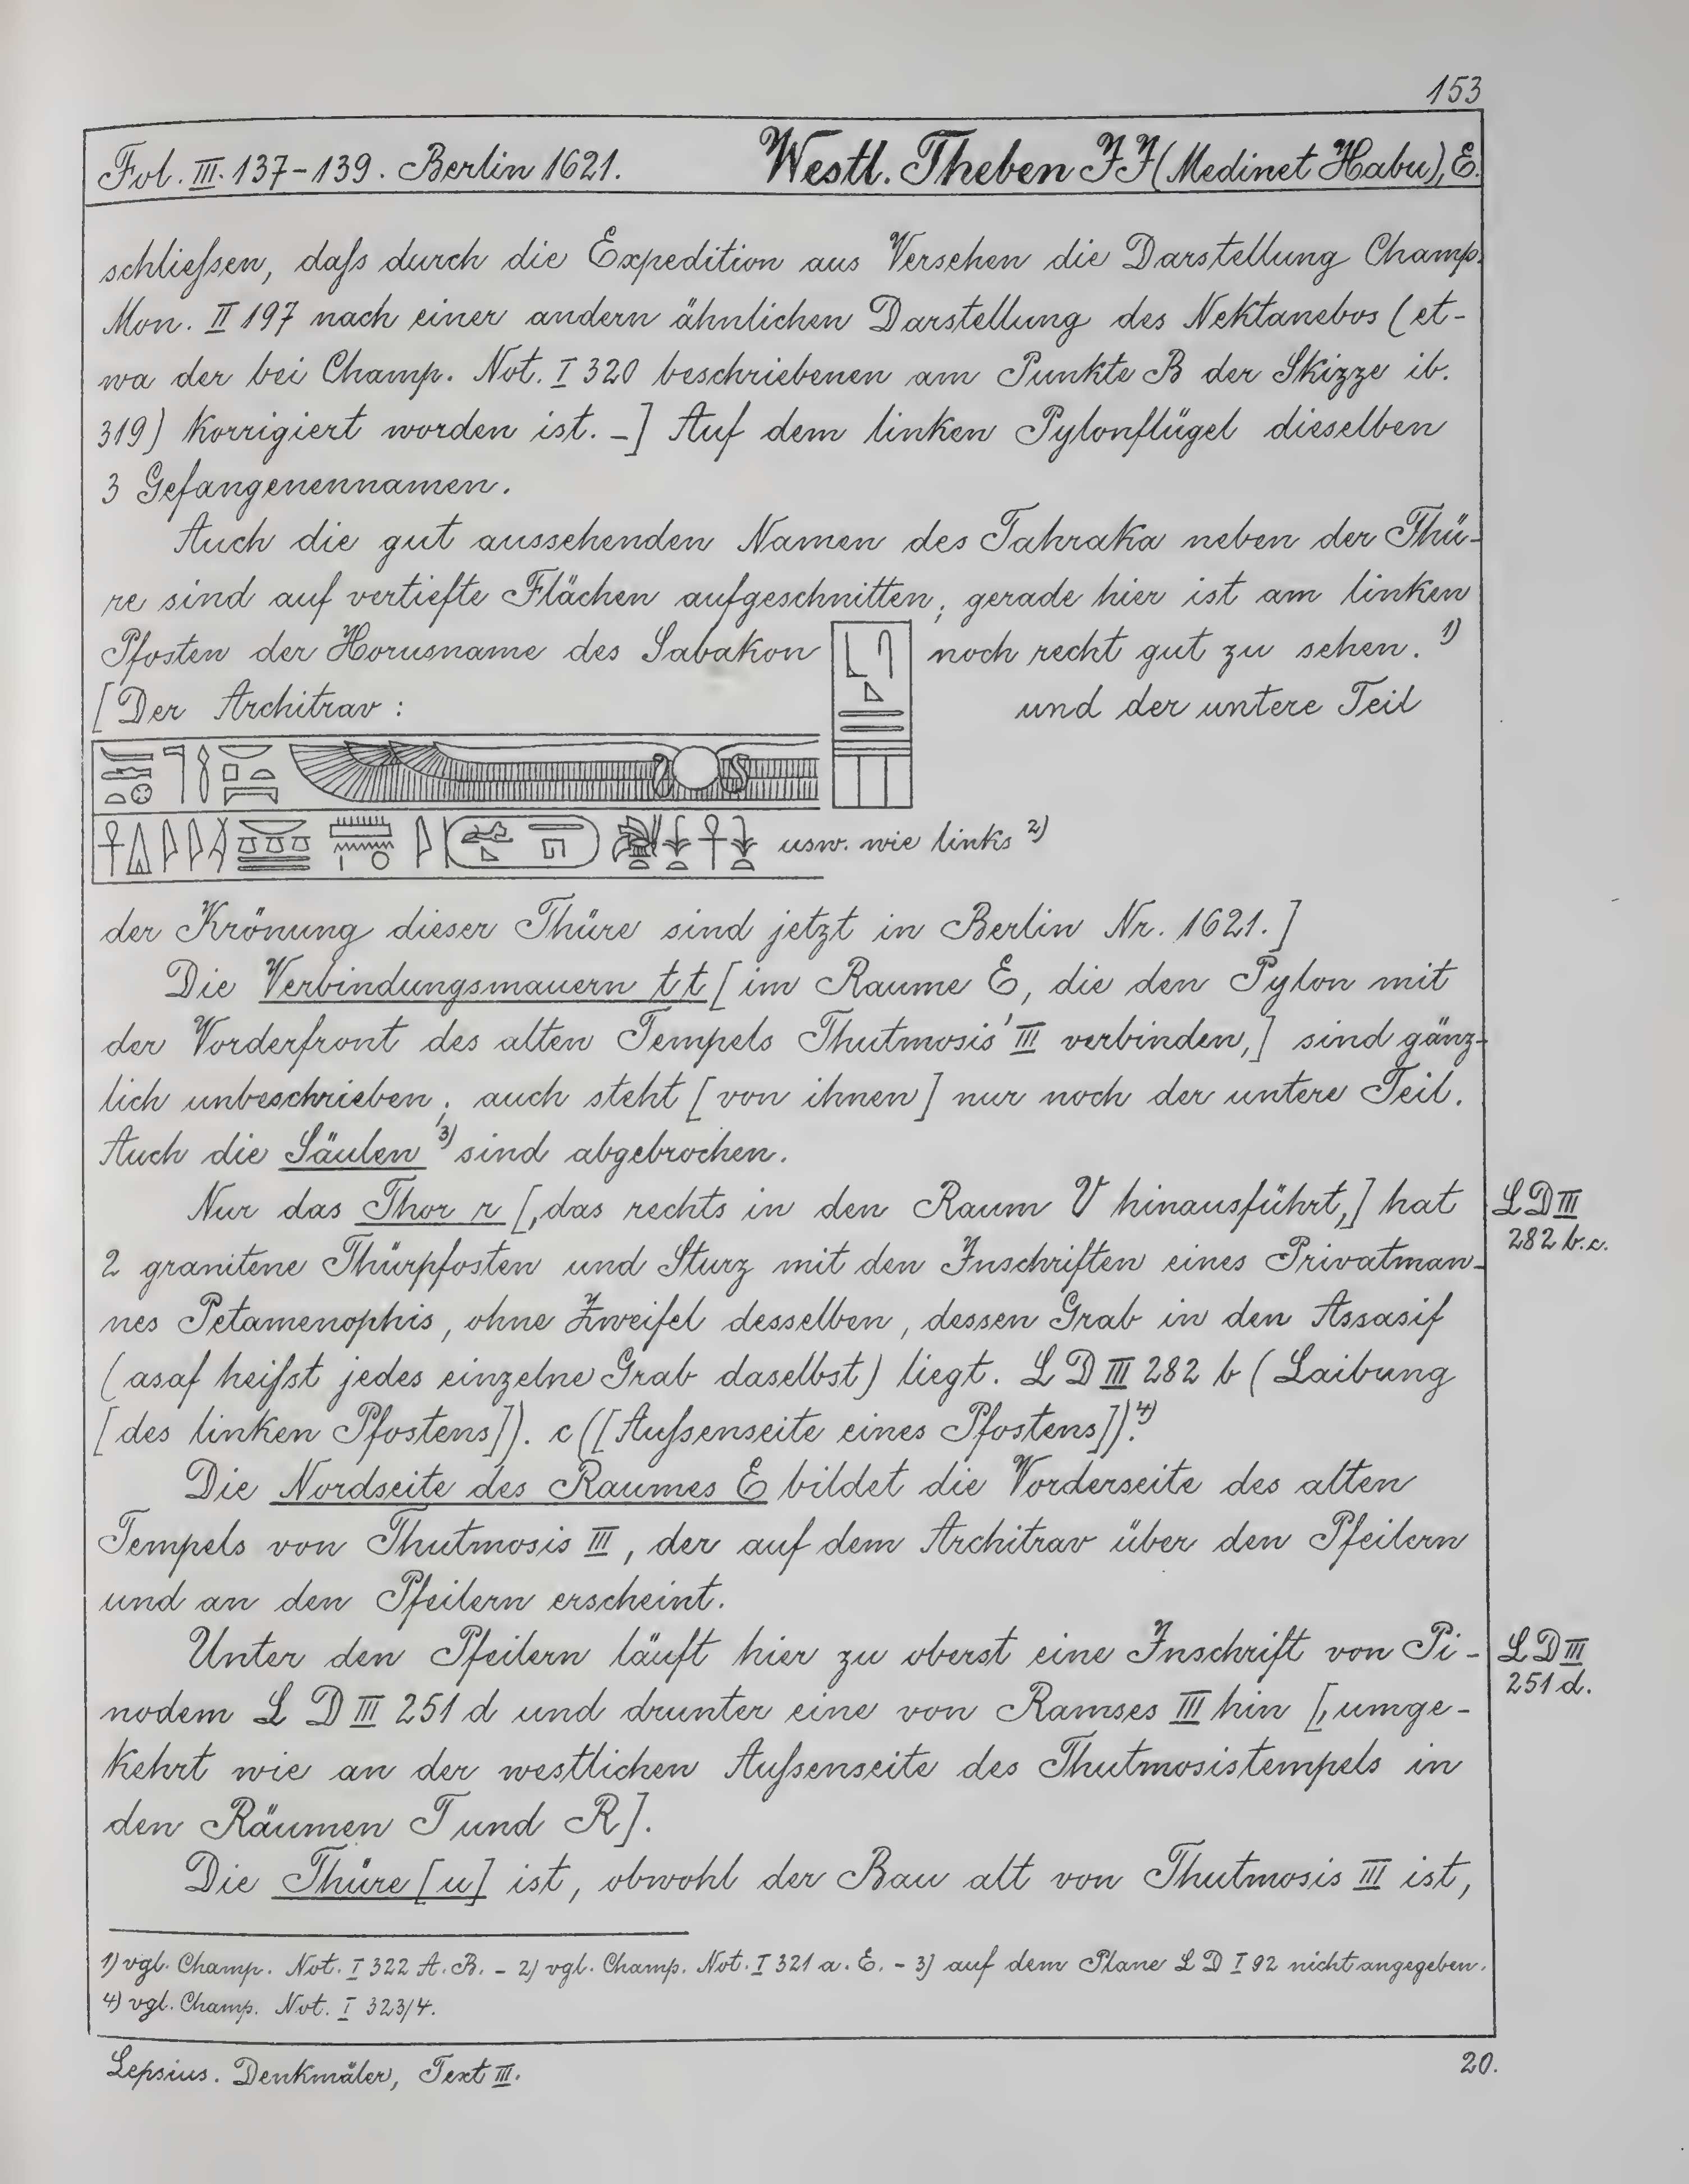 153
Fol. III. 137-139. Berlin 1621. Westl. Theben JJ (Medinet Habu), E.
schließen, daß durch die Expedition aus Versehen die Darstellung Champ.
Mon. II 197 nach einer andern ähnlichen Darstellung des Nektanebos (et-
wa der bei Champ. Not. I 320 beschriebenen am Punkte B der Skizze ib.
319) korrigiert worden ist. –] Auf dem linken Pylonflügel dieselben
3 Gefangenennamen.
Auch die gut aussehenden Namen des Tahraka neben der Thü-
re sind auf vertiefte Flächen aufgeschnitten; gerade hier ist am linken
Pfosten der Horusname des Sabakon noch recht gut zu sehen. 1)
[Der Architrav: und der untere Teil
usw. wie links 2)
der Krönung dieser Thüre sind jetzt in Berlin Nr. 1621.]
Die Verbindungsmauern t t [im Raume E, die den Pylon mit
der Vorderfront des alten Tempels Thutmosis' III verbinden,] sind gänz-
lich unbeschrieben; auch steht [von ihnen] nur noch der untere Teil.
Auch die Säulen 3) sind abgebrochen.
Nur das Thor r [, das rechts in den Raum V hinausführt,] hat
LD III
282 b.c.
2 granitene Thürpfosten und Sturz mit den Inschriften eines Privatman-
nes Petamenophis, ohne Zweifel desselben, dessen Grab in den Assasif
(asaf heißt jedes einzelne Grab daselbst) liegt. LD III 282 b (Laibung
[des linken Pfostens]). c ([Außenseite eines Pfostens]). 4)
Die Nordseite des Raumes E bildet die Vorderseite des alten
Tempels von Thutmosis III, der auf dem Architrav über den Pfeilern
und an den Pfeilern erscheint.
Unter den Pfeilern läuft hier zu oberst eine Inschrift von Pi-
LD III
251 d.
nodem LD III 251 d und drunter eine von Ramses III hin [, umge-
kehrt wie an der westlichen Außenseite des Thutmosistempels in
den Räumen T und R].
Die Thüre [u] ist, obwohl der Bau alt von Thutmosis III ist,
1) vgl. Champ. Not. I 322 A. B. – 2) vgl. Champ. Not. I 321 a. E. – 3) auf dem Plane LD I 92 nicht angegeben.
4) vgl. Champ. Not. I 323/4.
Lepsius. Denkmäler, Text III. 20.